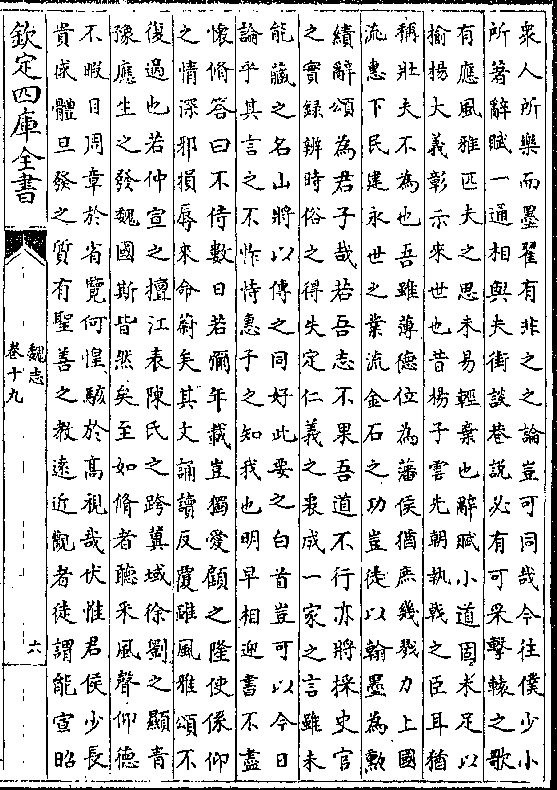 衆人所樂而墨翟有非之之論豈可同哉今往僕少小
所著辭賦一通相與夫街談巷說必有可采擊轅之歌
有應風雅匹夫之思未易輕棄也辭賦小道固未足以
揄揚大義彰示來世也昔楊子雲先朝執戟之臣耳猶
稱壯夫不為也吾雖薄德位為藩侯猶庶幾戮力上國
流惠下民建永世之業流金石之功豈徒以翰墨為勲
績辭頌為君子哉若吾志不果吾道不行亦將採史官
之實録辨時俗之得失定仁義之衷成一家之言雖未
能藏之名山將以傳之同好此要之白首豈可以今日
論乎其言之不怍恃惠子之知我也明早相迎書不盡
懷脩答曰不侍數日若彌年載豈獨愛顧之隆使係仰
之情深邪損辱來命蔚矣其文誦讀反覆雖風雅頌不
復過也若仲宣之擅江表陳氏之跨冀域徐劉之顯青
豫應生之發魏國斯皆然矣至如脩者聽采風聲仰德
不暇目周章於省覽何惶駭於高視哉伏惟君侯少長
貴盛體旦發之質有聖善之教遠近觀者徒謂能宣昭
欽定四庫全書
魏志
卷十九
六